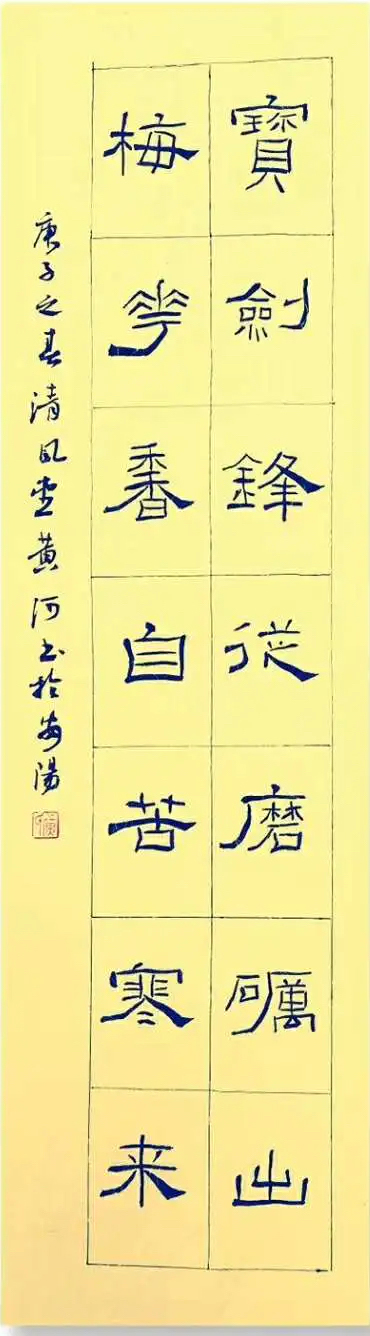 寶劍鋒從磨礪出
梅花香自苦寒来
庚子之春清風堂黄河书於安陽